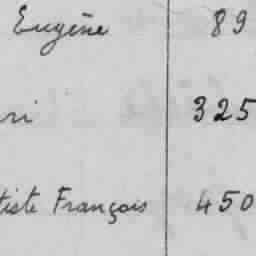 Eugène 89
ri 325
tiste François 450